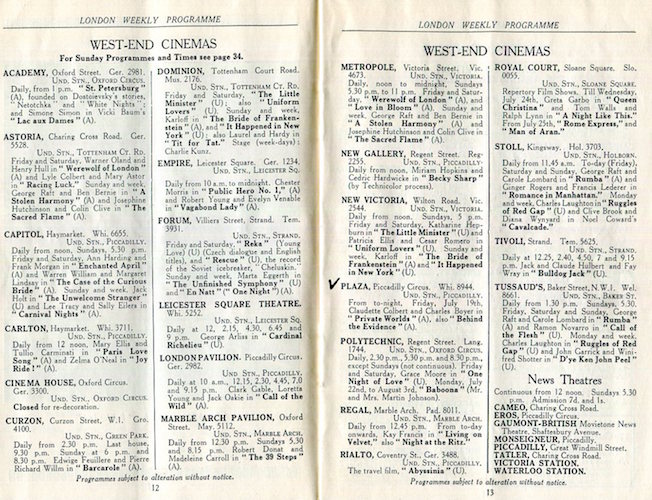 LONDON WEEKLY PROGRAMME
WEST-END CINEMAS
For Sunday Programmes and Times see page 34.
ACADEMY, Oxford Street. Ger. 2981.
UND. STN., OXFORD CIRCUS.
Daily, from 1 p.m. "St. Petersburg"
(A), founded on Dostoievsky's stories
"Netotchka" and "White Nights";
and Simone Simon in Vicki Baum's
"Lac aux Dames" (A).
ASTORIA, Charing Cross Road. Ger.
5528.
UND. STN., TOTTENHAM CT. RD.
Friday and Saturday, Warner Oland and
Henry Hull in "Werewolf of London"
(A) and Lyle Colbert and Mary Astor
in "Racing Luck." Sunday and week,
George Raft and Ben Bernie in "A
Stolen Harmony" (A) and Josephine
Hutchinson and Colin Clive in "The
Sacred Flame" (A).
CAPITOL, Haymarket. Whi. 6655.
UND. STN., PICCADILLY.
Daily from noon, Sundays, 5.30 p.m.
Friday and Saturday, Ann Harding and
Frank Morgan in "Enchanted April"
(A) and Warren William and Margaret
Lindsay in "The Case of the Curious
Bride" (A). Sunday and week, Jack
Holt in "The Unwelcome Stranger"
(U) and Lee Tracy and Sally Eilers in
"Carnival Nights" (A).
CARLTON, Haymarket. Whi. 3711.
UND. STN., PICCADILLY.
Daily from 12 noon, Mary Ellis and
Tullio Carminati in "Paris Love
Song" (A) and Zelma O'Neal in "Joy
Ride" (A).
CINEMA HOUSE, Oxford Circus.
Ger. 3300.
UND. STN., OXFORD CIRCUS.
Closed for re-decoration.
CURZON, Curzon Street, W.1. Gro.
4100.
UND. STN., GREEN PARK.
Daily from 2.30 p.m. Last house,
9.30 p.m. Sunday at 6 p.m. and
8.30 p.m. Edwige Feuillere and Pierre
Richard Willm in "Barcarole" (A).
DOMINION, Tottenham Court Road.
Mus. 2176.
UND. STN., TOTTENHAM CT. RD.
Friday and Saturday, "The Little
Minister" (U); also "Uniform
Lovers" (U). Sunday and week,
Karloff in "The Bride of Franken-
stein" (A), and "It Happened in New
York" (U); also Laurel and Hardy in
"Tit for Tat." Stage (week-days):
Charlie Kunz.
EMPIRE, Leicester Square. Ger. 1234.
UND. STN., LEICESTER SQ.
Daily from 10 a.m. to midnight, Chester
Morris in "Public Hero No. 1," (A)
and Robert Young and Evelyn Venable
in "Vagabond Lady" (A).
FORUM, Villiers Street, Strand. Tem.
3931.
UND. STN., STRAND.
Friday and Saturday, "Reka" (Young
Love) (U) (Czech dialogue and English
titles), and "Rescue" (U), the record
of the Soviet icebreaker, "Cheluskin."
Sunday and week, Marta Eggerth in
"The Unfinished Symphony" (U)
and En Natt" ("One Night") (A).
LEICESTER SQUARE THEATRE.
Whi. 5252.
UND. STN., LEICESTER SQ.
Daily at 12, 2.15, 4.30, 6.45 and
9 p.m. George Arliss in "Cardinal
Richelieu" (U).
LONDON PAVILION. Piccadilly Circus.
Ger. 2982.
UND. STN., PICCADILLY.
Daily at 10 a.m., 12.15, 2.30, 4.45, 7.0
and 9.15 p.m. Clark Gable, Loretta
Young and Jack Oakie in "Call of the
Wild" (A).
MARBLE ARCH PAVILION, Oxford
Street. May. 5112.
UND. STN., MARBLE ARCH.
Daily from 12.30 p.m. Sundays 5.30
and 8.15 p.m. Robert Donat and
Madeleine Carroll in "The 39 Steps"
(A).
Programmes subject to alteration without notice.
12
LONDON WEEKLY PROGRAMME
WEST-END CINEMAS
METROPOLE, Victoria Street. Vic.
4673.
UND. STN., VICTORIA.
Daily, noon to midnight, Sundays
5.30 p.m. to 11 p.m. Friday and Satur-
day, "Werewolf of London" (A) and
"Love in Bloom" (A). Sunday and
week, George Raft and Ben Bernie in
"A Stolen Harmony" (A) and
Josephine Hutchinson and Colin Clive in
"The Sacred Flame" (A).
NEW GALLERY, Regent Street. Reg.
2255.
UND. STN., PICCADILLY.
Daily from noon, Miriam Hopkins and
Cedric Hardwicke in "Becky Sharp"
(by Technicolor process).
NEW VICTORIA, Wilton Road. Vic.
2544.
UND. STN., VICTORIA.
Daily from noon. Sundays, 5 p.m.
Friday and Saturday, Katharine Hep-
burn in "The Little Minister" (U) and
Patricia Ellis and Cesar Romero in
"Uniform Lovers" (U). Sunday and
week, Karloff in "The Bride of
Frankenstein" (A) and "It Happened
in New York" (U).
PLAZA, Piccadilly Circus. Whi. 8944.
UND. STN., PICCADILLY.
From to-night, Friday, July 19th,
Claudette Colbert and Charles Boyer in
"Private Worlds" (A), also "Behind
the Evidence" (A).
POLYTECHNIC, Regent Street. Lang.
1744.
UND. STN., OXFORD CIRCUS.
Daily, 2.30 p.m., 5.30 p.m. and 8.30 p.m.,
except Sundays (not continuous). Friday
and Saturday, Grace Moore in "One
Night of Love" (U). Monday, July
22nd, to August 3rd, "Baboona" (Mr.
and Mrs. Martin Johnson).
REGAL, Marble Arch. Pad. 8011.
UND. STN., MARBLE ARCH.
Daily from 12.45 p.m. From to-day
onwards, Kay Francis in "Living on
Velvet," also "Night at the Ritz."
RIALTO, Coventry St., Ger. 3488.
UND. STN., PICCADILLY.
The travel film, "Abyssinia" (U).
ROYAL COURT, Sloane Square. Slo.
0055.
UND. STN., SLOANE SQUARE.
Repertory Film Shows. Till Wednesday,
July 24th, Greta Garbo in "Queen
Christina" and Tom Walls and
Ralph Lynn in "A Night Like This."
From July 25th, "Rome Express," and
"Man of Aran."
STOLL, Kingsway. Hol. 3703.
UND. STN., HOLBORN.
Daily from 11.45 a.m. To-day (Friday),
Saturday and Sunday, George Raft and
Carole Lombard in "Rumba" (A) and
Ginger Rogers and Francis Lederer in
"Romance in Manhattan." Monday
and week, Charles Laughton in "Ruggles
of Red Gap" (U) and Clive Brook and
Diana Wynyard in Noel Coward's
"Cavalcade."
TIVOLI, Strand. Tem. 5625.
UND. STN., STRAND.
Daily at 12.25, 2.40, 4.50, 7 and 9.15
p.m. Jack and Claude Hulbert and Fay
Wray in "Bulldog Jack" (U).
TUSSAUD'S, Baker Street, N.W.1. Wel.
8661.
UND. STN., BAKER ST.
Daily from 1.30 p.m. Sundays, 5.30.
Friday, Saturday and Sunday, George
Raft and Carole Lombard in "Rumba"
(A) and Ramon Novarro in "Call of
the Flesh" (U). Monday and week,
Charles Laughton in "Ruggles of Red
Gap" (U) and John Garrick and Wini-
fred Shotter in "D'ye Ken John Peel"
(U).
News Theatres
Continuous from 12 noon. Sundays 5.30
p.m. Admission 7d. and 1s.
CAMEO, Charing Cross Road.
EROS, Piccadilly Circus.
GAUMONT-BRITISH Movietone News
Theatre, Shaftesbury Avenue.
MONSEIGNEUR, Piccadilly.
PICCADILLY, Great Windmill Street.
TATLER, Charing Cross Road.
VICTORIA STATION.
WATERLOO STATION.
Programmes subject to alteration without notice.
13